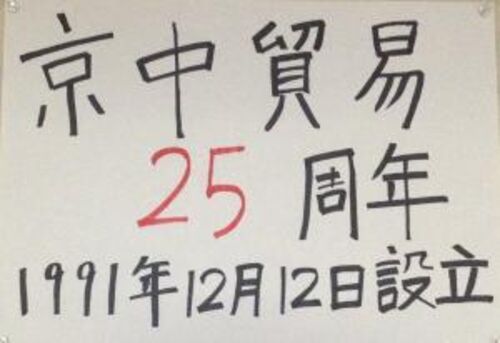 京中貿易
25周年
1991年12月12日設立